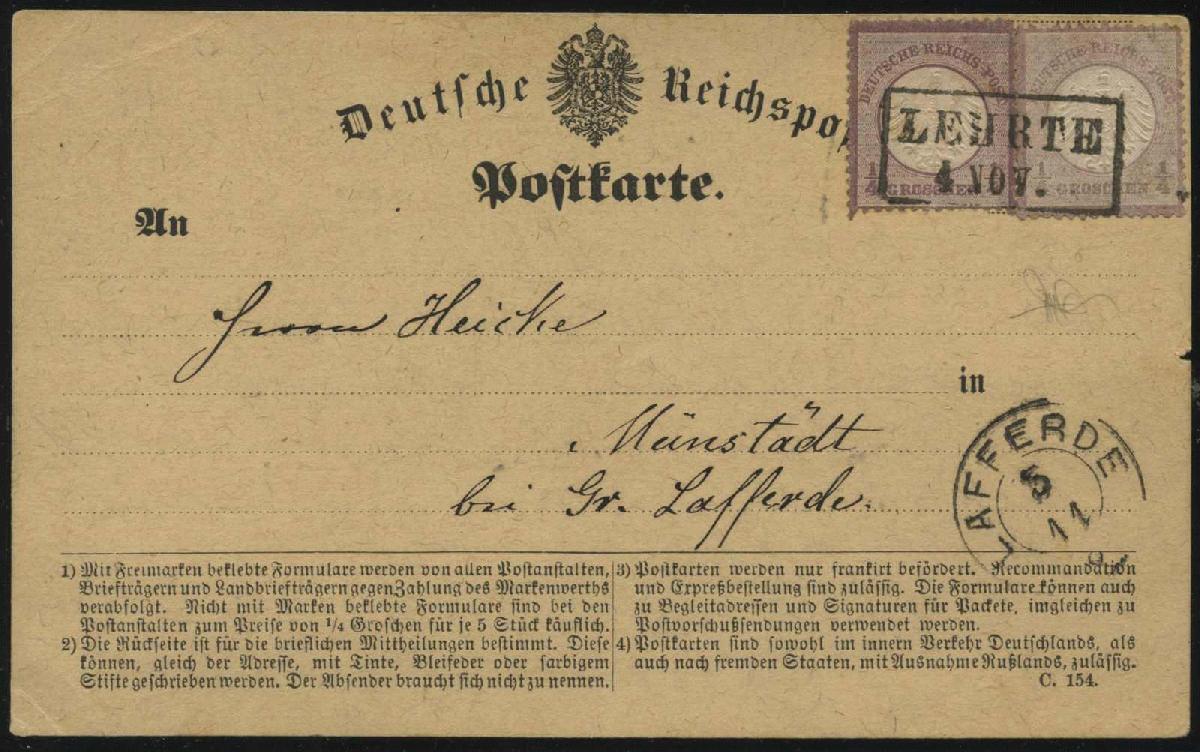 Deutsche Reichspo
DEUTSCHE REICHS-POST
DEUTSCHE REICHS-POST
1/4 GROSCHEN 1/4
1/4 GROSCHEN 1/4
LEHRTE
4 NOV.
Postkarte.
An
Herrn Heicke
in
Münstädt
bei Gr. Lafferde.
LAFFERDE
5
11
1) Mit Freimarken beklebte Formulare werden von allen Postanstalten,
Briefträgern und Landbriefträgern gegen Zahlung des Markenwerths
verabfolgt. Nicht mit Marken beklebte Formulare sind bei den
Postanstalten zum Preise von 1/4 Groschen für je 5 Stück käuflich.
2) Die Rückseite ist für die brieflichen Mittheilungen bestimmt. Diese
können, gleich der Adresse, mit Tinte, Bleifeder oder farbigem
Stifte geschrieben werden. Der Absender braucht sich nicht zu nennen.
3) Postkarten werden nur frankirt befördert. Recommandation
und Expreßbestellung sind zulässig. Die Formulare können auch
zu Begleitadressen und Signaturen für Packete, imgleichen zu
Postvorschußsendungen verwendet werden.
4) Postkarten sind sowohl im innern Verkehr Deutschlands, als
auch nach fremden Staaten, mit Ausnahme Rußlands, zulässig.
C. 154.